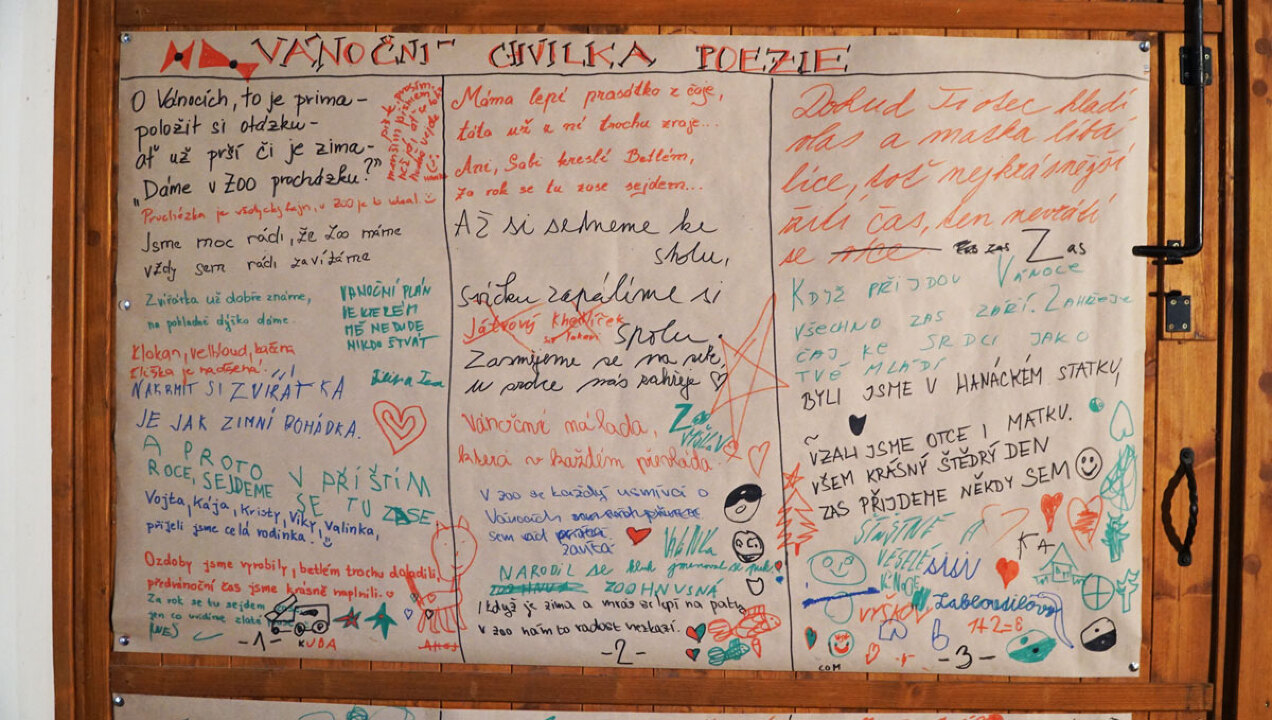 VÁNOČNÍ CHVILKA POEZIE
O Vánocích, to je prima –
položit si otázku –
ať už prší či je zima –
„Dáme v ZOO procházku?"
Procházka je vždycky fajn, v ZOO je to
Jsme moc rádi, že Zoo máme
vždy sem rádi zavítáme
Zvířátka už dobře známe,
na pokladně dýško dáme.
VÁNOČNÍ PLÁN
VE KTERÉM
MĚ NEBUDE
NIKDO ŠTVÁT
Klokan, velbloud, kačena
Eliška je nadšená.
NAKRMIT SI ZVÍŘÁTKA
JE JAK ZIMNÍ POHÁDKA.
A PROTO V PŘÍŠTÍM
ROCE, SEJDEME SE TU ZASE
Vojta, Kája, Kristy, Viky, Valinka,
přijeli jsme celá rodinka!
Ozdoby jsme vyrobily, betlém trochu dozdobili,
předvánoční čas jsme krásně naplnili.
Za rok se tu sejdem
jen co uvidíme zlaté
INES
KUBA
- 1 -
Máma lepí prasátko z čaje,
táta už u ní trochu zraje...
Ani, Sabi kreslí Betlém,
za rok se tu zase sejdem...
Až si sedneme ke
stolu,
svíčku zapálíme si
Játrový knedlíček
spolu.
Zasmějeme se na sebe,
u srdce nás zahřeje
Vánoční nálada,
která v každém převládá.
V zoo se každý usmívá o
Vánocích
sem rád
zavítá
NARODIL se kluk jmenoval se
ZOOHNUSNÁ
I když je zima a mráz se lepí na paty,
v zoo nám to radost nezkazí.
- 2 -
Dokud Ti otec hladí
vlas a matka líbá
líce, toť nejkrásnější
žití čas, ten nevrátí
se Zas
KDYŽ PŘIJDOU VÁNOCE
VŠECHNO ZAS ZÁŘÍ. ZAHŘEJE
ČAJ KE SRDCI JAKO
TVÉ MLÁDÍ
BYLI JSME V HANÁCKÉM STATKU,
VZALI JSME OTCE I MATKU.
VŠEM KRÁSNÝ ŠTĚDRÝ DEN
ZAS PŘIJDEME NĚKDY SEM
ŠŤASTNÉ A
VESELÉ
VÁNOCE
VYŠKOV
1+2=6
- 3 -